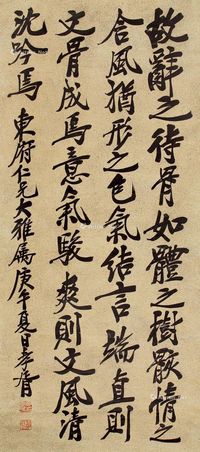 故辭之待骨如體之樹骸情之
含風猶形之包氣結言端直則
文骨成焉意氣駿爽則文風清
沈吟焉 東府仁兄大雅屬 庚午夏日孝胥